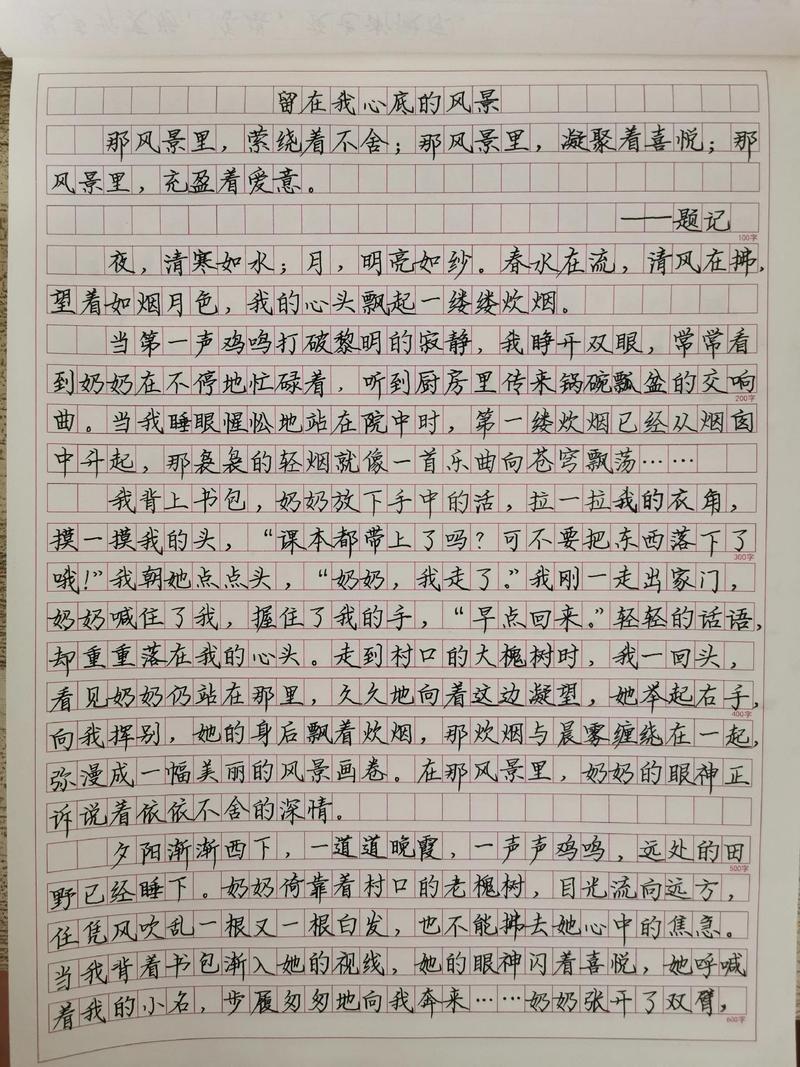 留在我心底的风景
那风景里，萦绕着不舍；那风景里，凝聚着喜悦；那
风景里，充盈着爱意。
——题记
100字
夜，清寒如水；月，明亮如纱。春水在流，清风在拂，
望着如烟月色，我的心头飘起一缕缕炊烟。
当第一声鸡鸣打破黎明的寂静，我睁开双眼，常常看
到奶奶在不停地忙碌着，听到厨房里传来锅碗瓢盆的交响
200字
曲。当我睡眼惺忪地站在院中时，第一缕炊烟已经从烟囱
中升起，那袅袅的轻烟就像一首乐曲向苍穹飘荡……
我背上书包，奶奶放下手中的活，拉一拉我的衣角，
摸一摸我的头，“课本都带上了吗？可不要把东西落下了
300字
哦！”我朝她点点头，“奶奶，我走了。”我刚一走出家门，
奶奶喊住了我，握住了我的手，“早点回来。”轻轻的话语，
却重重落在我的心头。走到村口的大槐树时，我一回头，
看见奶奶仍站在那里，久久地向着这边凝望，她举起右手，
400字
向我挥别，她的身后飘着炊烟，那炊烟与晨雾缠绕在一起，
弥漫成一幅美丽的风景画卷。在那风景里，奶奶的眼神正
诉说着依依不舍的深情。
夕阳渐渐西下，一道道晚霞，一声声鸡鸣，远处的田
500字
野已经睡下。奶奶倚靠着村口的老槐树，目光流向远方，
任凭风吹乱一根又一根白发，也不能拂去她心中的焦急。
当我背着书包渐入她的视线，她的眼神闪着喜悦，她呼喊
着我的小名，步履匆匆地向我奔来……奶奶张开了双臂，
600字